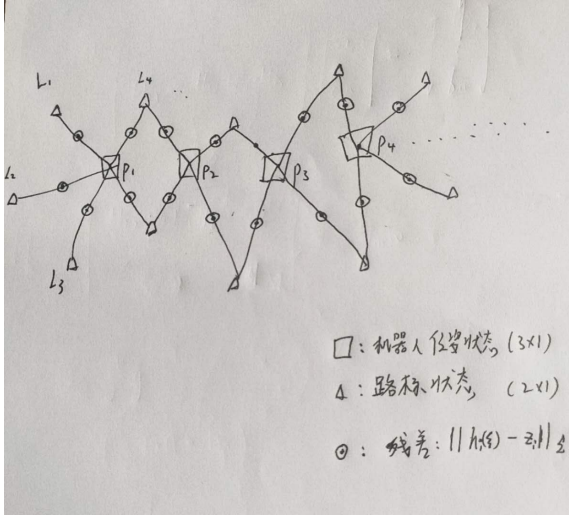 L₁
L₄
L₂
P₁
P₂
P₃
P₄
L₃
□: 机器人位姿状态 (3×1)
△: 路标状态 (2×1)
⊙: 残差: ||hᵢ(ξ) - zᵢ||Σ